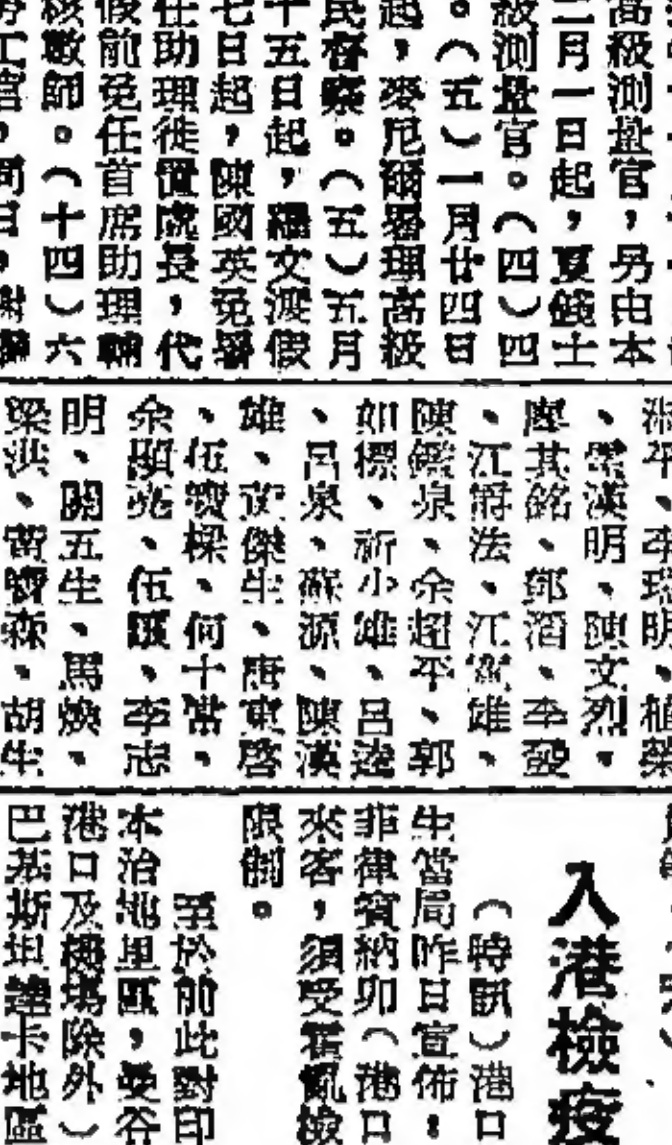 高級測量官，另由本
二月一日起，夏錢士
級測量官。（四）四
。（五）一月廿四日
起，麥尼爾署理高級
民督察。（五）五月
十五日起，羅文渡假
七日起，陳國英免署
任助理徙置處長，代
假前免任首席助理輔
核數師。（十四）六
勞工官，同日，謝
湘平、李瑞明、植榮
、漢明、陳文烈。
廖其銘、鄧滔、李發
、江爵法、江雄、
陳鑑泉、余超平、郭
如標、新小雄、呂逵
、呂泉、蘇源、陳漢
雄、黃傑生、唐東啓
、伍樑、何十常、
余顯光、伍、李志
明、關五生、馬煥、
梁洪、雷森、胡生
入港檢疫
（時訊）港口
生當局昨日宣佈：
菲律賓納卯（港口
來客，須受霍亂檢
限制。
至於前此對印
本治地里區，曼谷
港口及機場除外）
巴基斯坦達卡地區